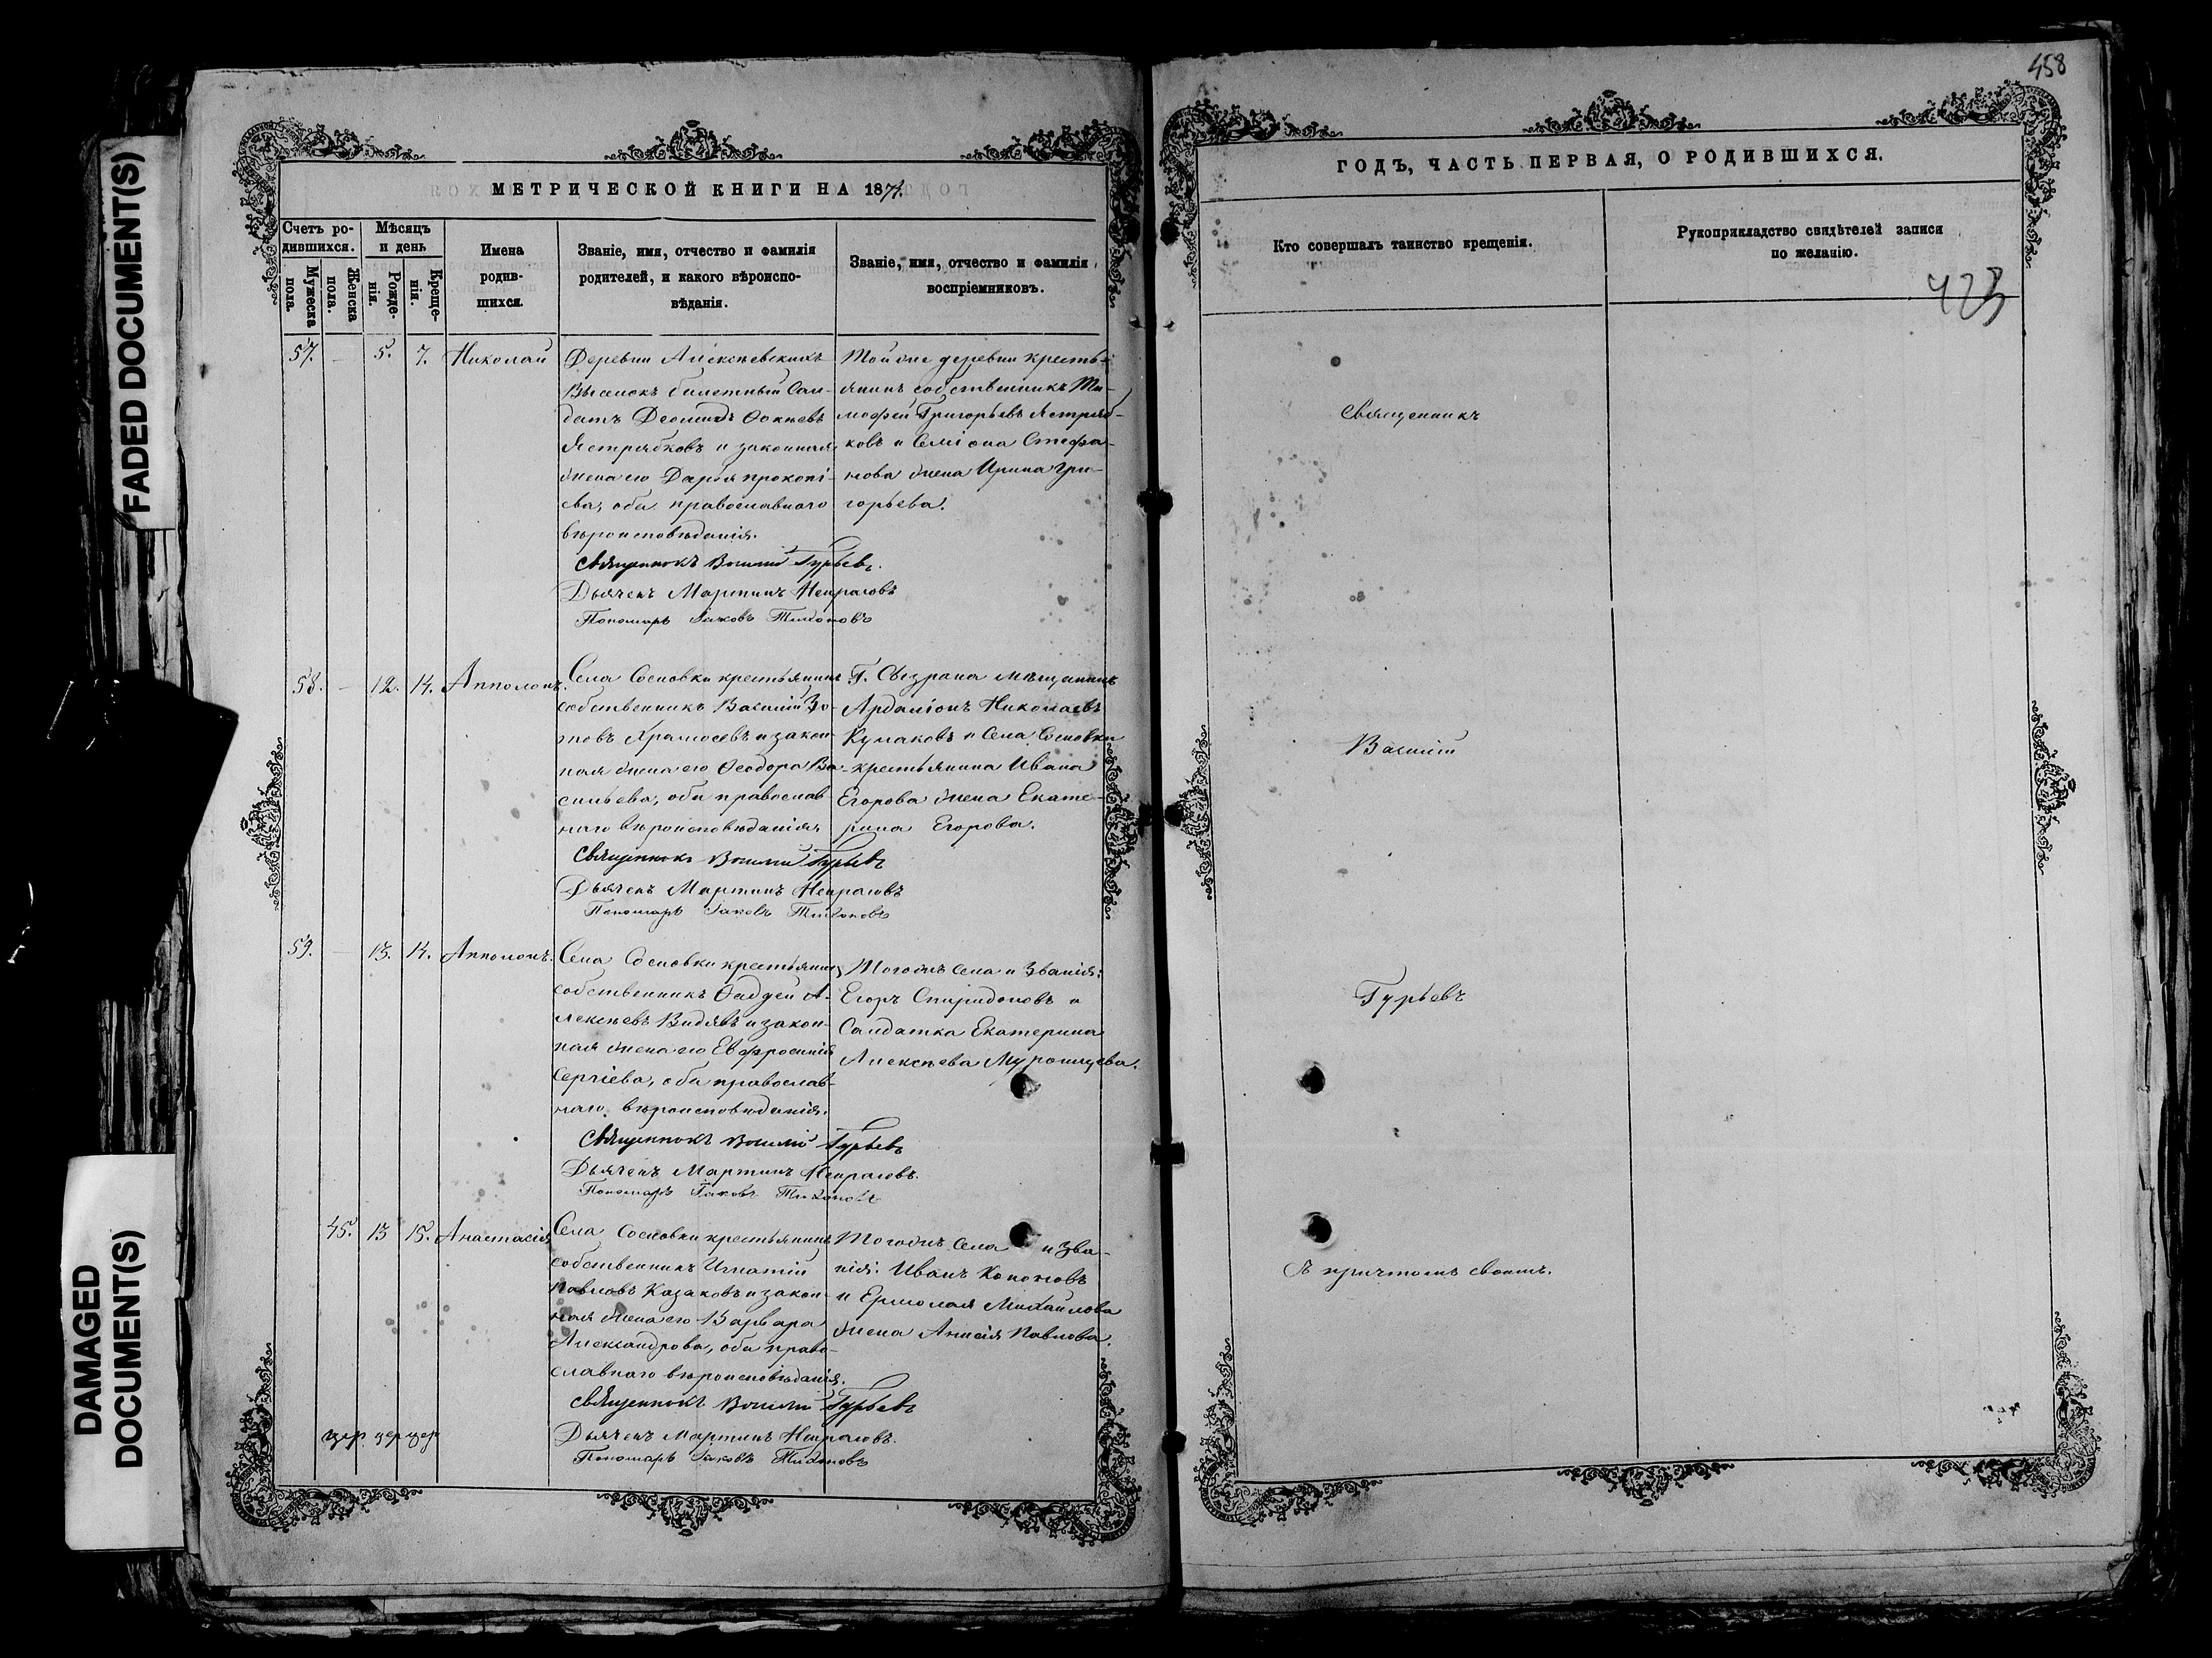 458
МЕТРИЧЕСКОЙ КНИГИ НА 1874.
Счетъ ро-
дившихся.
Мужеска
пола.
Женска
пола.
Мѣсяцъ
и день
Рожде-
нія.
Креще-
нія.
Имена
родив-
шихся.
Званіе, имя, отчество и фамилія
родителей, и какого вѣроиспо-
вѣданія.
Званіе, имя, отчество и фамилія
воспріемниковъ.
57. — 5. 7. Николай
Деревни Алексѣевскихъ
Выселокъ билетный Сол-
датъ Ѳокѣевъ
Ястребковъ и законная
жена его Дарья Прокопі-
ева, оба православнаго
вѣроисповѣданія.
Священникъ Василій Гурьевъ.
Дьячекъ Мартинъ Некрасовъ
Пономарь Іаковъ Тихоновъ
Той же деревни кресть-
янинъ собственникъ Ти-
мофей Григорьевъ Ястреб-
ковъ и Семіона Стефа-
нова жена Ирина Гри-
горьева.
58. — 12. 14. Апполонъ.
Села Сосновки крестьянинъ
собственникъ Василій Зо-
товъ и закон-
ная жена его Ѳеодора Ва-
сильева, оба православ-
наго вѣроисповѣданія.
Священникъ Василій Гурьевъ
Дьячекъ Мартинъ Некрасовъ
Пономарь Іаковъ Тихоновъ
Г. Сызрана мѣщанинъ
Ардаліонъ Николаевъ
Кулаковъ и Села Сосновки
крестьянина Ивана
Егорова жена Екате-
рина Егорова.
59. — 13. 14. Апполонъ.
Села Сосновки крестьянинъ
собственникъ Ѳаддей А-
лексѣевъ Видявъ и закон-
ная жена его Евфросинія
Сергіева, оба православ-
наго вѣроисповѣданія.
Священникъ Василій Гурьевъ
Дьячекъ Мартинъ Некрасовъ.
Пономарь Іаковъ Тихоновъ
Тогожъ села и званія:
Егоръ Спиридоновъ и
Солдатка Екатерина
Алексѣева Муромцева.
45. 13 15. Анастасія
Села Сосновки крестьянинъ
собственникъ Игнатій
Павловъ Казаковъ и закон-
ная жена его Варвара
Александрова, оба право-
славнаго вѣроисповѣданія.
Священникъ Василій Гурьевъ
Дьячекъ Мартинъ Некрасовъ.
Пономарь Іаковъ Тихоновъ
Тогожъ села и зва-
нія: Иванъ Кононовъ
и Ермолая Михайлова
жена Анисія Павлова.
ГОДЪ, ЧАСТЬ ПЕРВАЯ, О РОДИВШИХСЯ.
Кто совершалъ таинство крещенія.
Рукоприкладство свидѣтелей записи
по желанію.
Священникъ
Василій
Гурьевъ
Съ причтомъ своимъ.
FADED DOCUMENT(S)
DAMAGED
DOCUMENT(S)